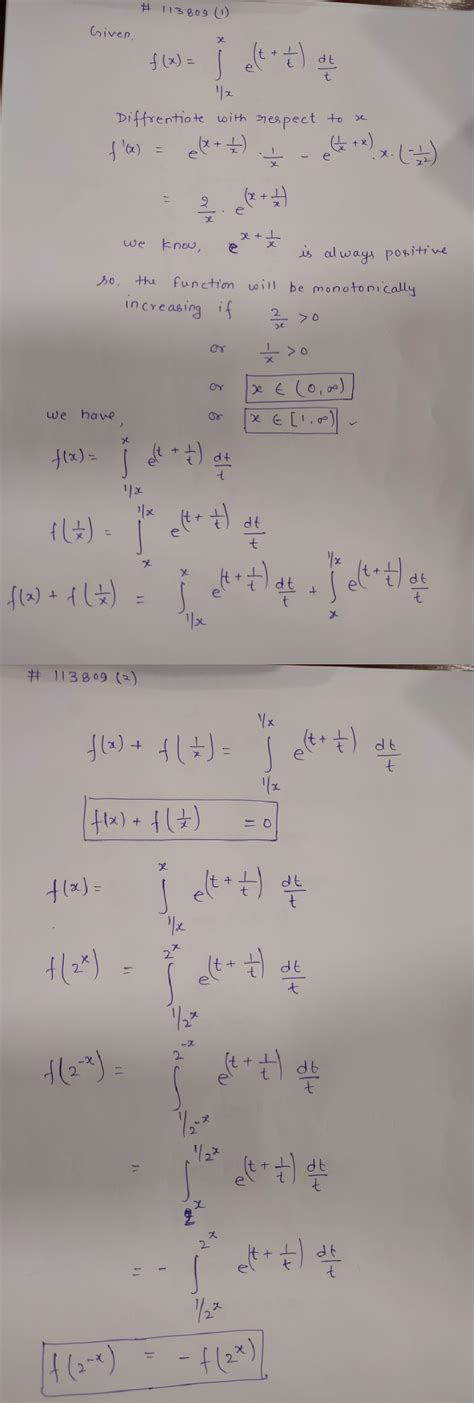 # 113809 (1)
Given,
f(x) = ∫_{1/x}^{x} e^{(t + 1/t)} dt/t
Diffrentiate with respect to x
f'(x) = e^{(x + 1/x)} · 1/x − e^{(1/x + x)} · x · (−1/x²)
= 2/x · e^{(x + 1/x)}
we know, e^{x + 1/x} is always positive
so, the function will be monotonically
increasing if 2/x > 0
or 1/x > 0
or x ∈ (0, ∞)
or x ∈ [1, ∞)
we have,
f(x) = ∫_{1/x}^{x} e^{(t + 1/t)} dt/t
f(1/x) = ∫_{x}^{1/x} e^{(t + 1/t)} dt/t
f(x) + f(1/x) = ∫_{1/x}^{x} e^{(t + 1/t)} dt/t + ∫_{x}^{1/x} e^{(t + 1/t)} dt/t
# 113809 (2)
f(x) + f(1/x) = ∫_{1/x}^{1/x} e^{(t + 1/t)} dt/t
f(x) + f(1/x) = 0
f(x) = ∫_{1/x}^{x} e^{(t + 1/t)} dt/t
f(2^x) = ∫_{1/2^x}^{2^x} e^{(t + 1/t)} dt/t
f(2^{-x}) = ∫_{1/2^{-x}}^{2^{-x}} e^{(t + 1/t)} dt/t
= ∫_{2^x}^{1/2^x} e^{(t + 1/t)} dt/t
= − ∫_{1/2^x}^{2^x} e^{(t + 1/t)} dt/t
f(2^{-x}) = − f(2^x)